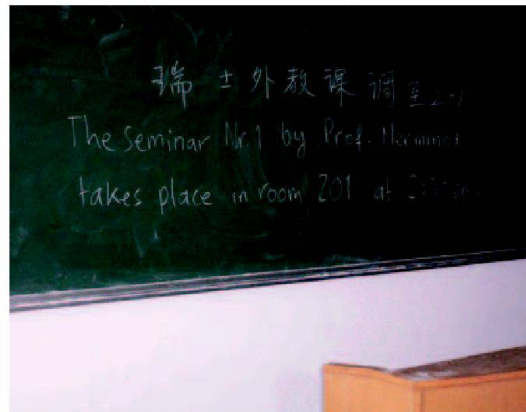 瑞士外教课调至201
The Seminar Nr.1 by Prof.
takes place in room 201 at